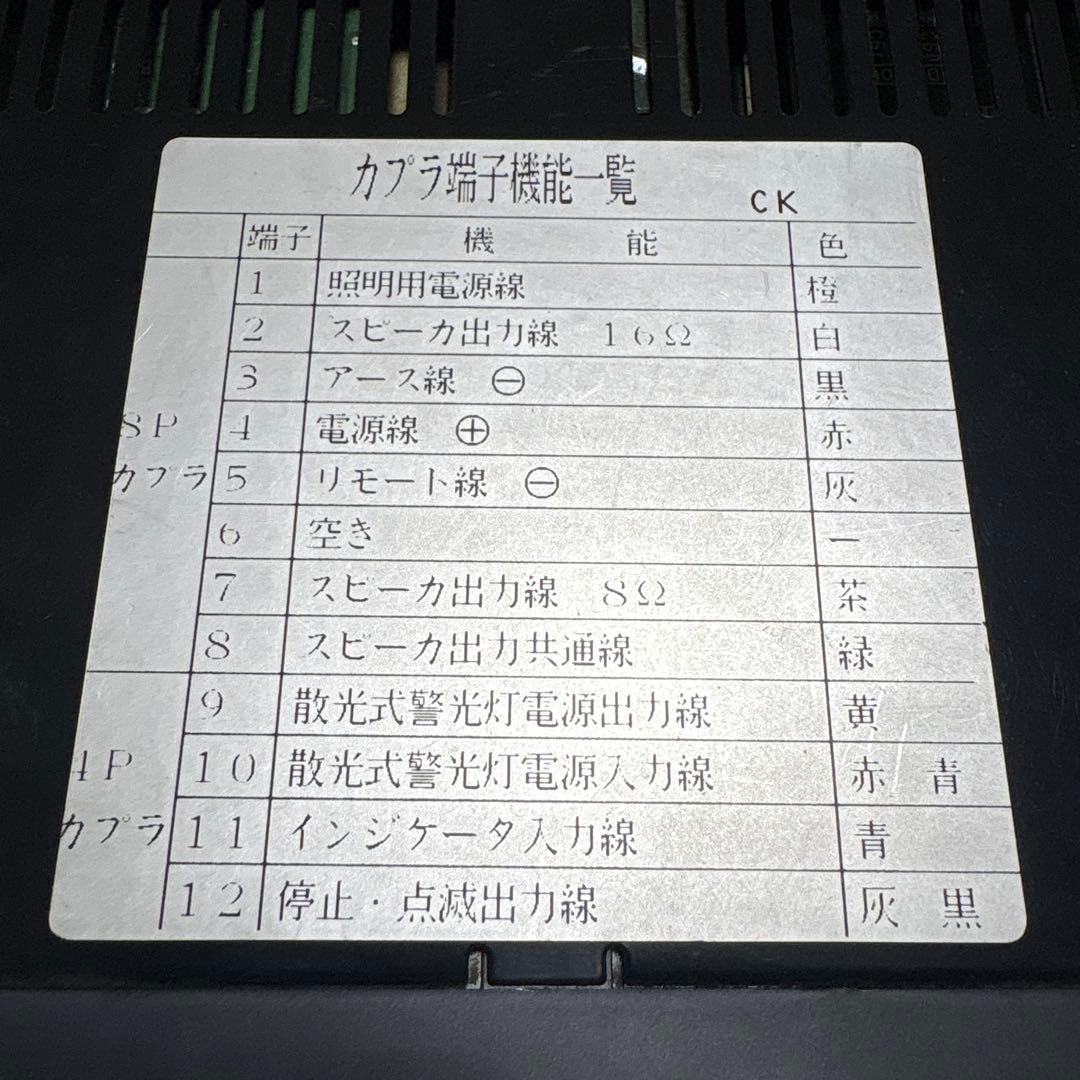 カプラ端子機能一覧 CK
端子 機能 色
1 照明用電源線 橙
2 スピーカ出力線 16Ω 白
3 アース線 ⊖ 黒
8P 4 電源線 ⊕ 赤
カプラ 5 リモート線 ⊖ 灰
6 空き ー
7 スピーカ出力線 8Ω 茶
8 スピーカ出力共通線 緑
9 散光式警光灯電源出力線 黄
4P 10 散光式警光灯電源入力線 赤 青
カプラ 11 インジケータ入力線 青
12 停止・点滅出力線 灰 黒